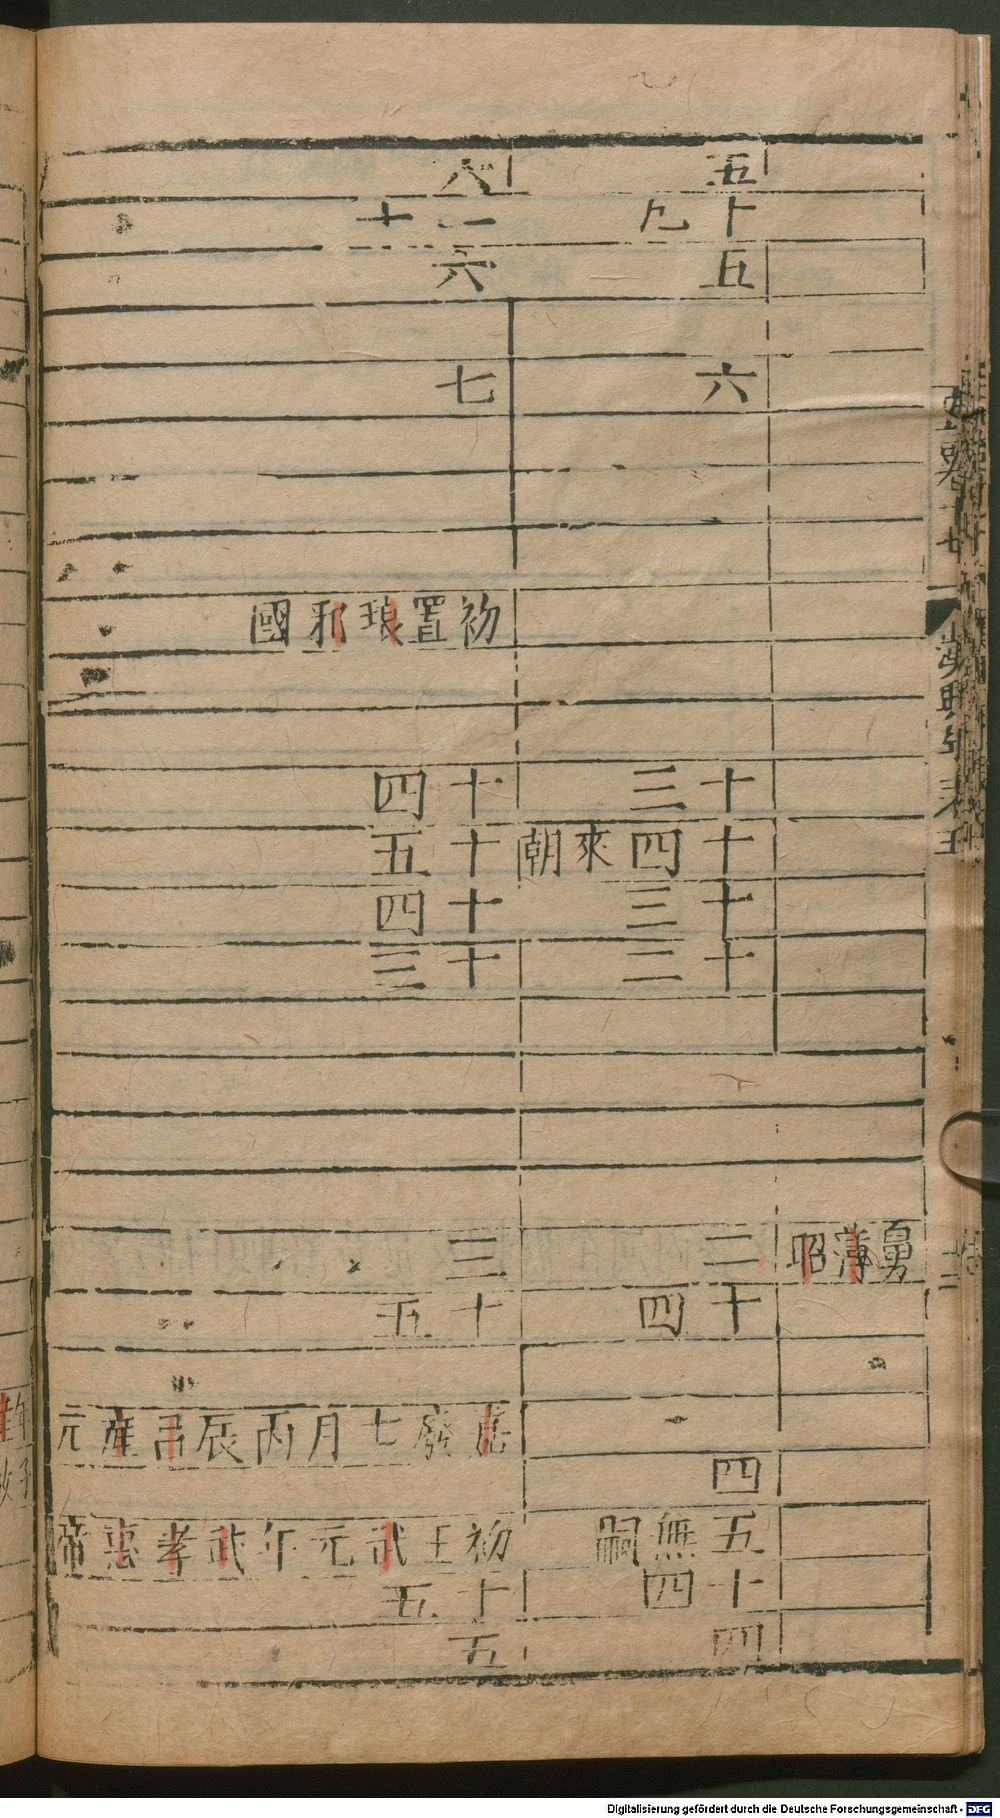 舅薄昭
五
十九
五
六
十三
十四來朝
十三
十二
二
十四
四
五無嗣
十四
四
八
一十
六
七
初置琅邪國
十四
十五
十四
十三
三
十五
廢七月丙辰呂產元
初王武元年武孝惠帝
十五
五
Digitalisierung gefördert durch die Deutsche Forschungsgemeinschaft - DFG